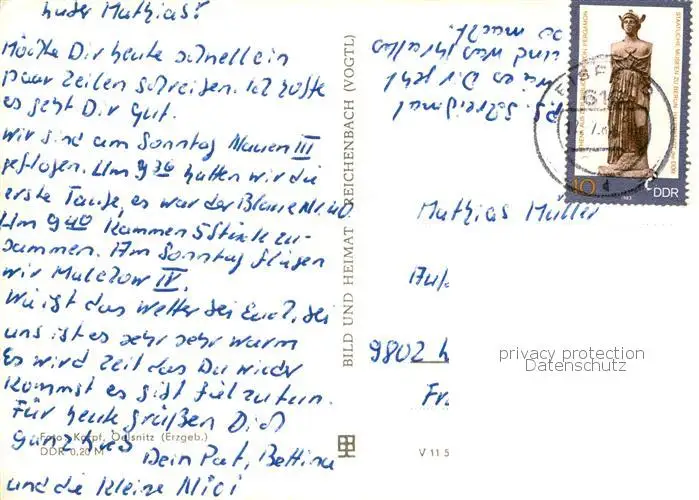 Lieber Mathias!
Möchte Dir heute schnell ein
paar Zeilen schreiben. Ich hoffe
es geht Dir gut.
Wir sind am Sonntag Nauen III
geflogen. Um 9 36 hatten wir die
erste Taube, es war der Blaue Nr. 40.
Um 9 40 kammen 5 Stück zu-
sammen. Am Sonntag flügen
wir Malchow IV.
Wie ist das Wetter bei Euch, bei
uns ist es sehr sehr warm
Es wird Zeit das Du wieder
kommst es gibt fiel zu tun.
Für heute grüßen Dich
ganz
Dein Pat, Bettina
und die kleine Mici
Foto: Karpf, Oelsnitz (Erzgeb.)
DDR 0,20 M
BILD UND HEIMAT REICHENBACH (VOGTL)
V 11 5
P.S. Schreib mal
wie es Dir geht
und was
so macht.
STAATLICHE MUSEEN ZU BERLIN
10
DDR
Mathias Müller
9802
Fr.
privacy protection
Datenschutz